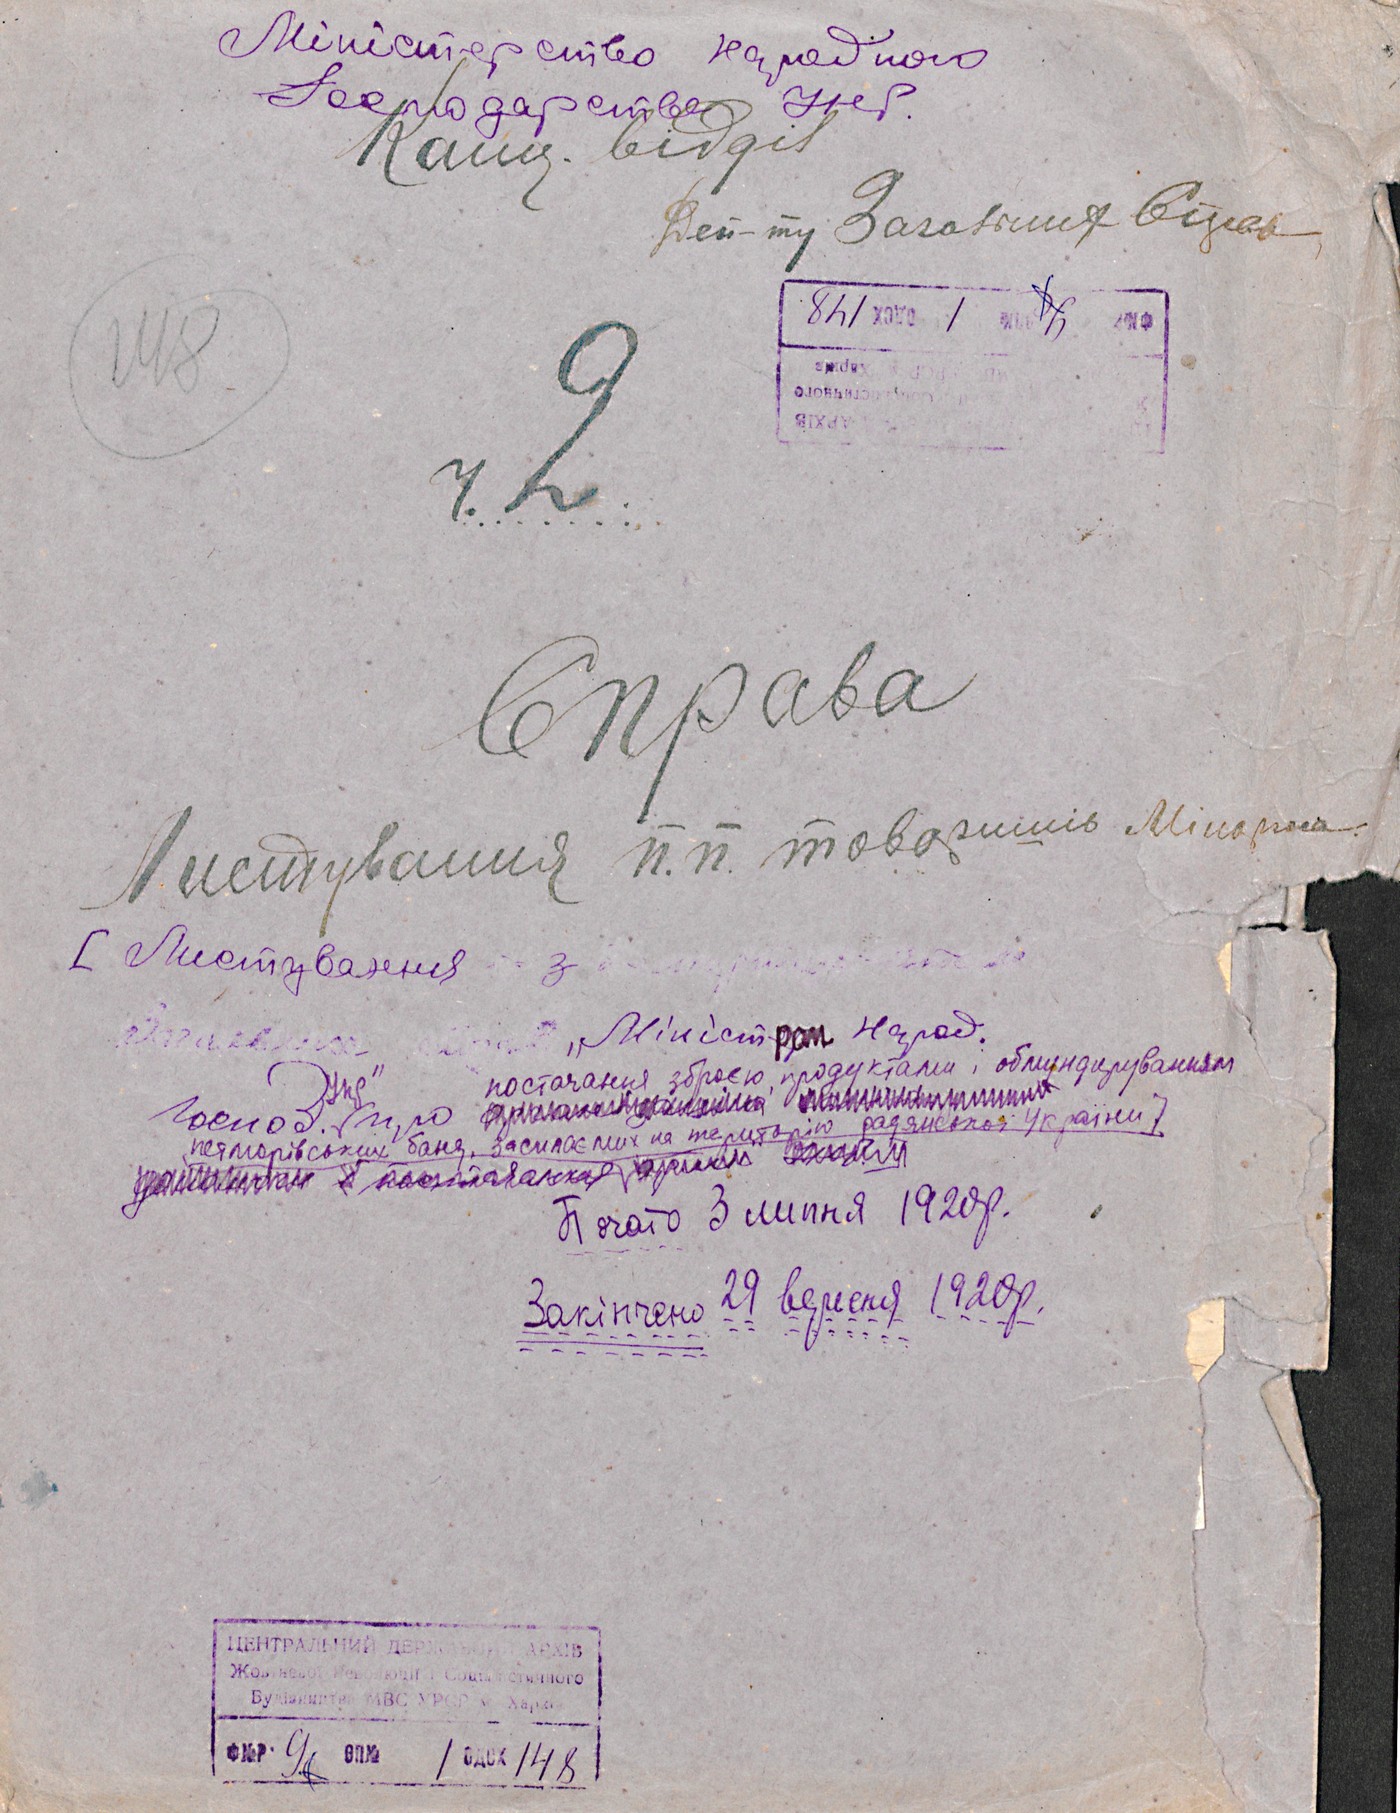 Міністерство народного
Господарства УНР.
Канц. відділ
Деп-ту Загальних Справ
148
ФМР ОПМ 1 ОДСХ 148
АРХІВ
ч. 2
Справа
Листування п.п. товаришів Міністра
[ Листування з
„Міністром народ.
постачання зброєю, продуктами і обмундируванням
господ. УНР" про
петлюрівських банд, засилаємих на територію радянської України]
Почато 3 липня 1920р.
Закінчено 29 вересня 1920р.
ЦЕНТРАЛЬНИЙ ДЕРЖАВНИЙ АРХІВ
Жовтневої Революції і Соціалістичного
Будівництва МВС УРСР м. Харків
ФМР. 9 ОПМ 1 ОДСХ 148